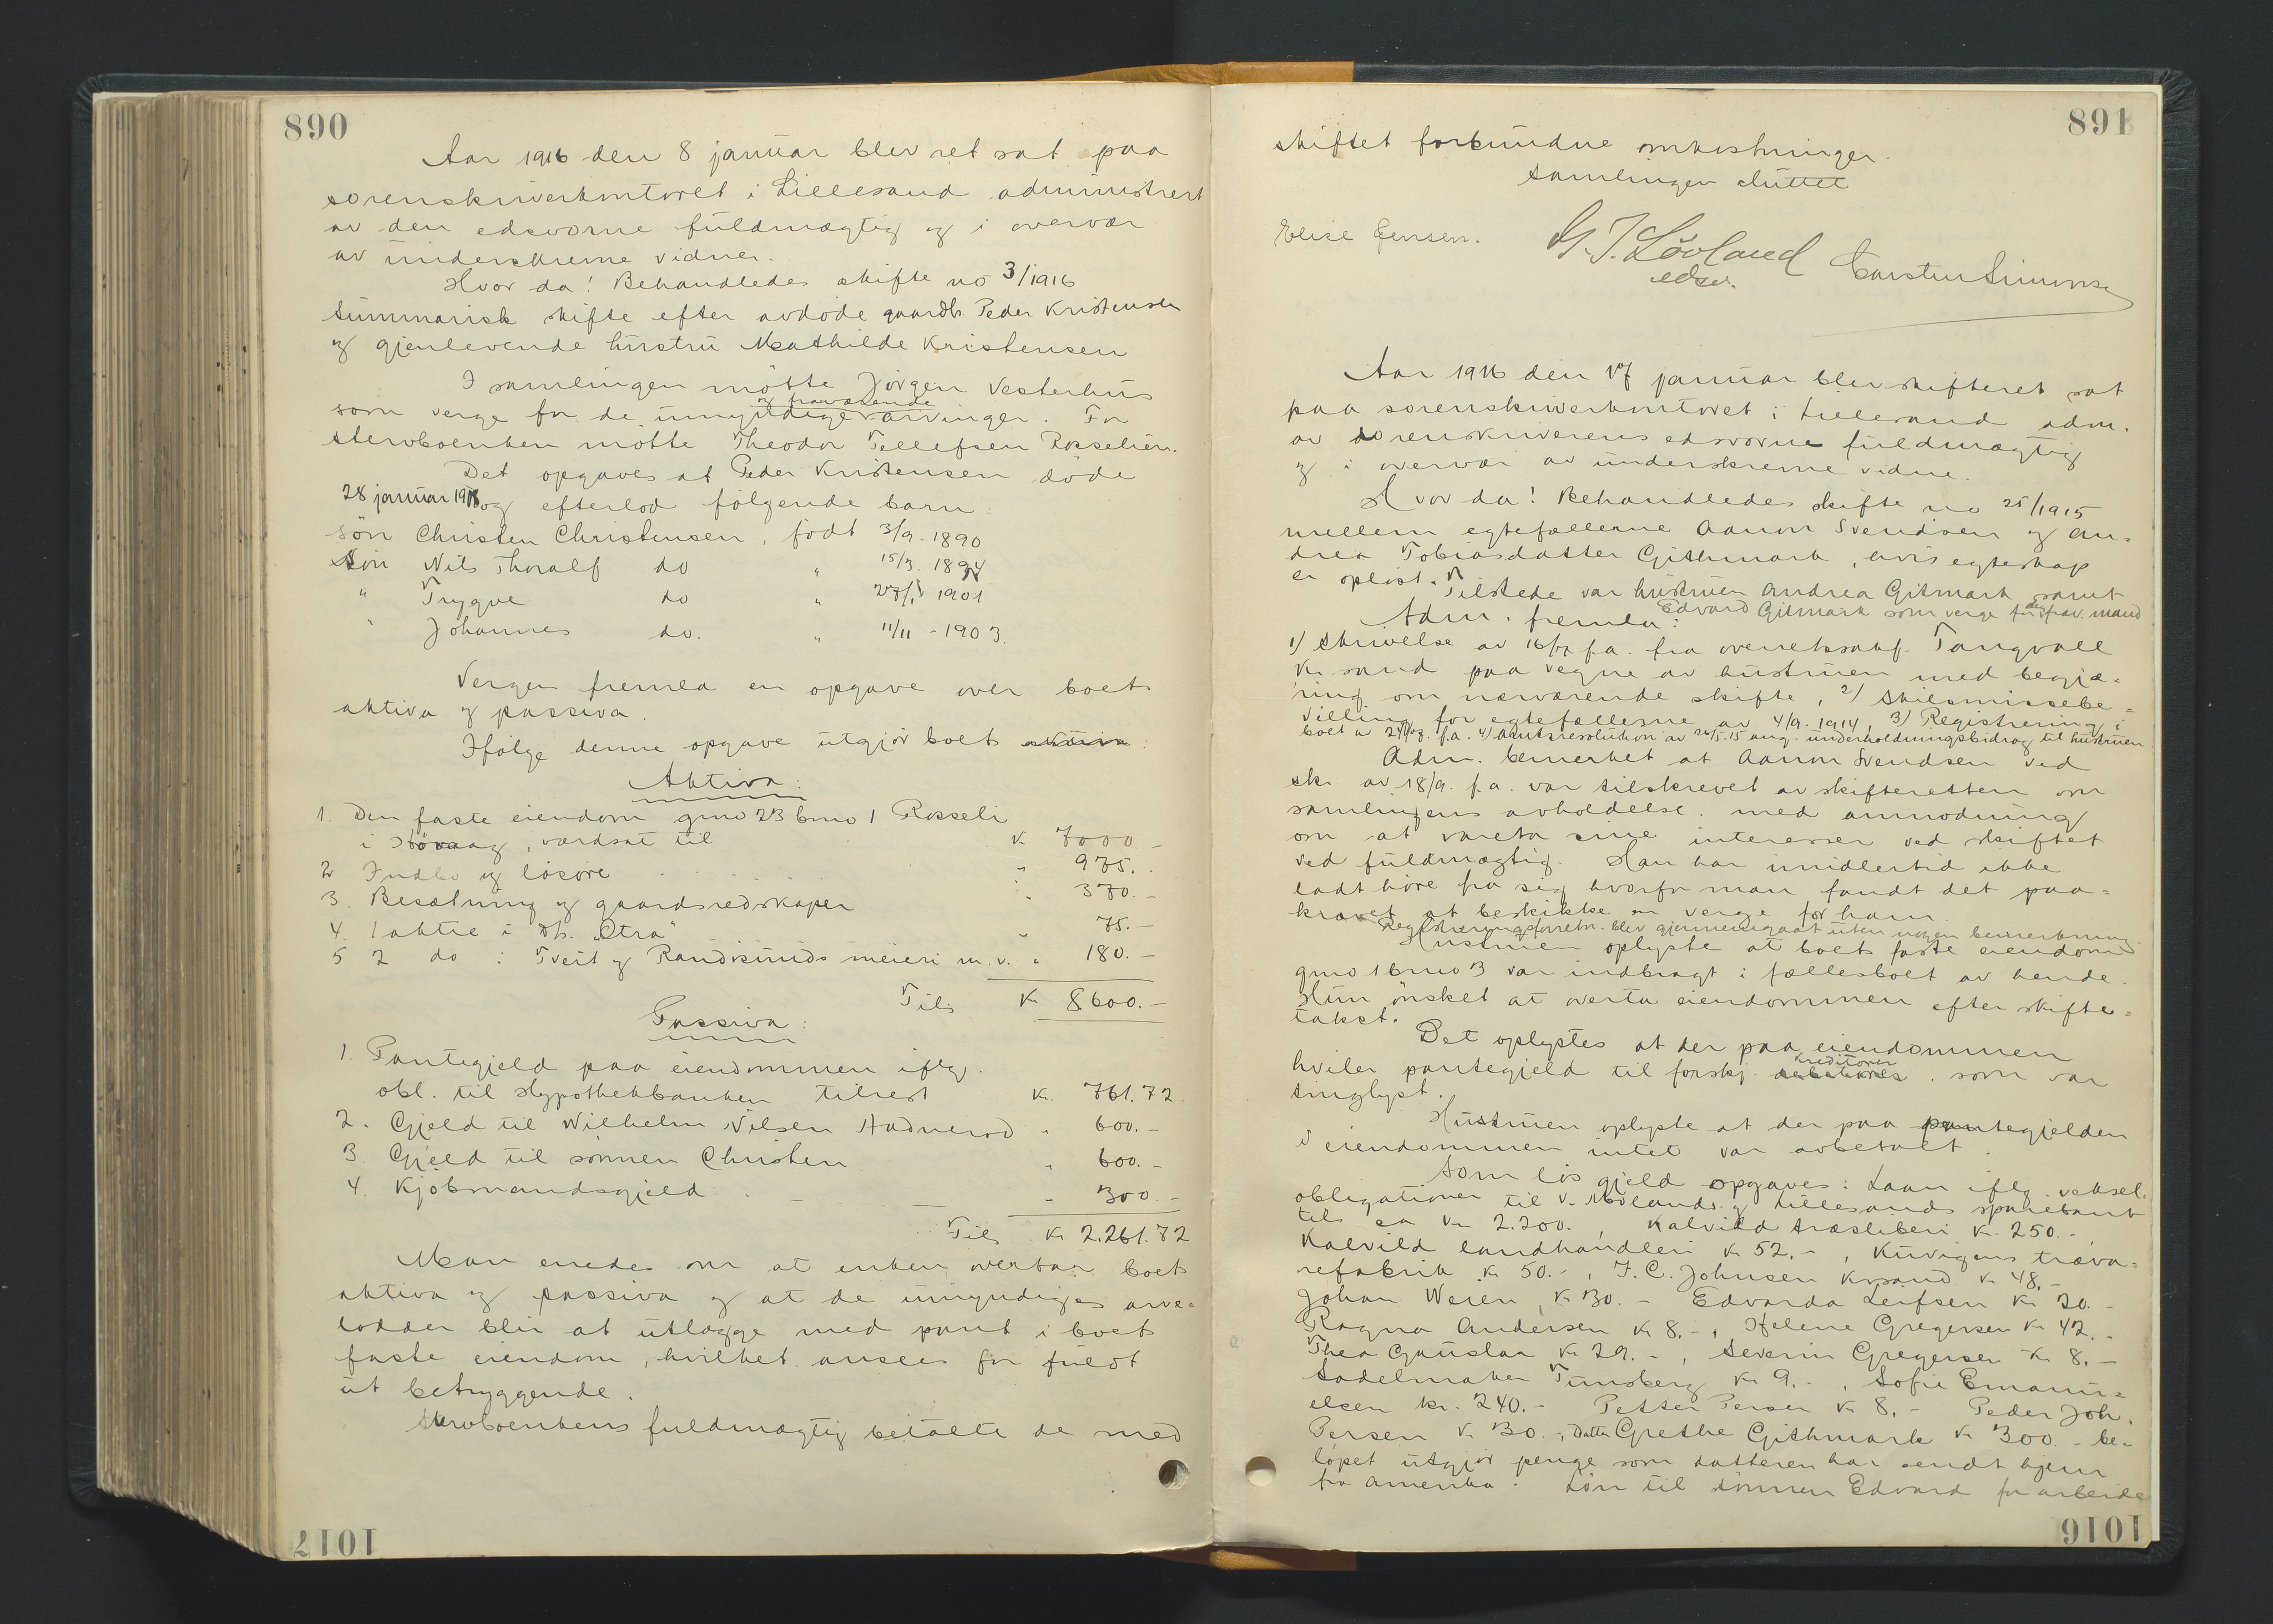 890
Aar 1916 den 8 januar blev ret sat paa
sorenskriverkontoret i Lillesand administrert
av den edsvorne fuldmægtig og i overvær
av underskrevne vidner.
Hvor da! Behandledes skifte no 3/1916
summarisk skifte efter avdøde gaardbr. Peder Kristensen
og gjenlevende hustru Mathilde Kristensen
I samlingen møtte Jörgen Vesterhus
og fraværende
som verge for de umyndige arvinger. For
stervboenken møtte Theodor Tellefsen Rosselien.
Det opgaves at Peder Kristensen døde
28 januar 19 og efterlod følgende barn
søn Christen Christensen, født 3/9. 1890
Søn Nils Thoralf do " 15/3. 1894
" Trygve do " 1901
" Johannes do. " 11/11 - 1903.
Vergen fremla en opgave over boets
aktiva og passiva.
Ifølge denne opgave utgjør boets aktiva:
Aktiva:
1. Den faste eiendom gno 23 bno 1 Rosseli
i Høvaag, værdsat til k 7000.-
2 Indbo og løsøre " 975.-
3. Besætning og gaardsredskaper " 370.-
4. 1 aktie i D/s. "Otra" " 75.-
5 2 do i Tveit og Randøsunds meieri m.v. " 180.-
Tils Kr 8600.-
Passiva:
1. Pantegjeld paa eiendommen iflg.
obl. til Hypothekbanken tilrest Kr. 761.72
2. Gjeld til Wilhelm Nilsen Hodnerød " 600.-
3. Gjeld til sønnen Christen " 600.-
4. Kjøbmandsgjeld " 300.-
Tils Kr 2.261.72
Man enedes om at enken overtar boets
aktiva og passiva og at de umyndiges arve=
lodder blir at utlægge med pant i boets
faste eiendom, hvilket ansees for fuldt
ut betryggende.
Stervboenkens fuldmægtig betalte de med
1017
891
skiftet forbundne omkostninger.
Samlingen sluttet
Elise Jensen. G. T. Løvland Carsten Simonsen
edsv.
Aar 1916 den 17 januar blev skifteret sat
paa sorenskriverkontoret i Lillesand adm.
av sorenskriverens edsvorne fuldmægtig
og i overvær av underskrevne vidne.
Hvor da! Behandledes skifte no 25/1915
mellem egtefællerne Aanon Svendsen og An=
drea Tobiasdatter Githmark, hvis egteskap
er opløst. Tilstede var hustruen Andrea Gitmark samt
Edvard Gitmark som verge for den frav. mand
Adm. fremla:
1) Skrivelse av f.a. fra overretssakf. Tangvall
Kr.sand paa vegne av hustruen med begjæ=
ring om nærværende skifte, 2) Skilsmissebe=
villing for egtefællerne av 4/9. 1914, 3) Registrering i
boet av f.a. 4) Amtsresolution av ang. underholdningsbidrag til hustruen
Adm. bemerket at Aanon Svendsen ved
skr. av 18/9. f.a. var tilskrevet av skifteretten om
samlingens avholdelse. med anmodning
om at vareta sine interesser ved skiftet
ved fuldmægtig. Han har imidlertid ikke
ladt høre fra sig hvorfor man fandt det paa=
krævet at beskikke en verge for ham.
Registreringsforretn. blev gjennemgaat uten nogen bemerkning
Hustruen oplyste at boets faste eiendom
gno 1 bno 3 var indbragt i fællesboet av hende.
Hun ønsket at overta eiendommen efter skifte=
takst.
Det oplystes at der paa eiendommen
kreditorer
hviler pantegjeld til forskj. som var
tinglyst.
Hustruen oplyste at der paa pantegjelden
i eiendommen intet var avbetalt.
Som løs gjeld opgaves: Laan iflg. veksel=
obligationer til V. Molands og Lillesands sparebank
tils ca kr 2.200. , Kalvild træsliberi kr. 250.-
Kalvild landhandleri kr 52.- , Kuvigens træva=
refabrik kr 50.- , J. C. Johnsen Krsand kr 48.-
Johan Weien, kr 30.- Edvarda Leifsen kr 20.-
Ragna Andersen kr 8.- , Helene Gregersen kr 42.-
Thea Gauslaa kr 29.- , Severin Gregersen kr 8.-
Sadelmaker Tunsberg kr 9.- , Sofie Emanu=
elsen kr. 240.- Petter Persen kr 8.- Peder Joh.
Persen kr 30. , Datter Grethe Githmark kr 300.- be=
løpet utgjør penge som datteren har sendt hjem
fra Amerika. Løn til sønnen Edvard for arbeide
1016